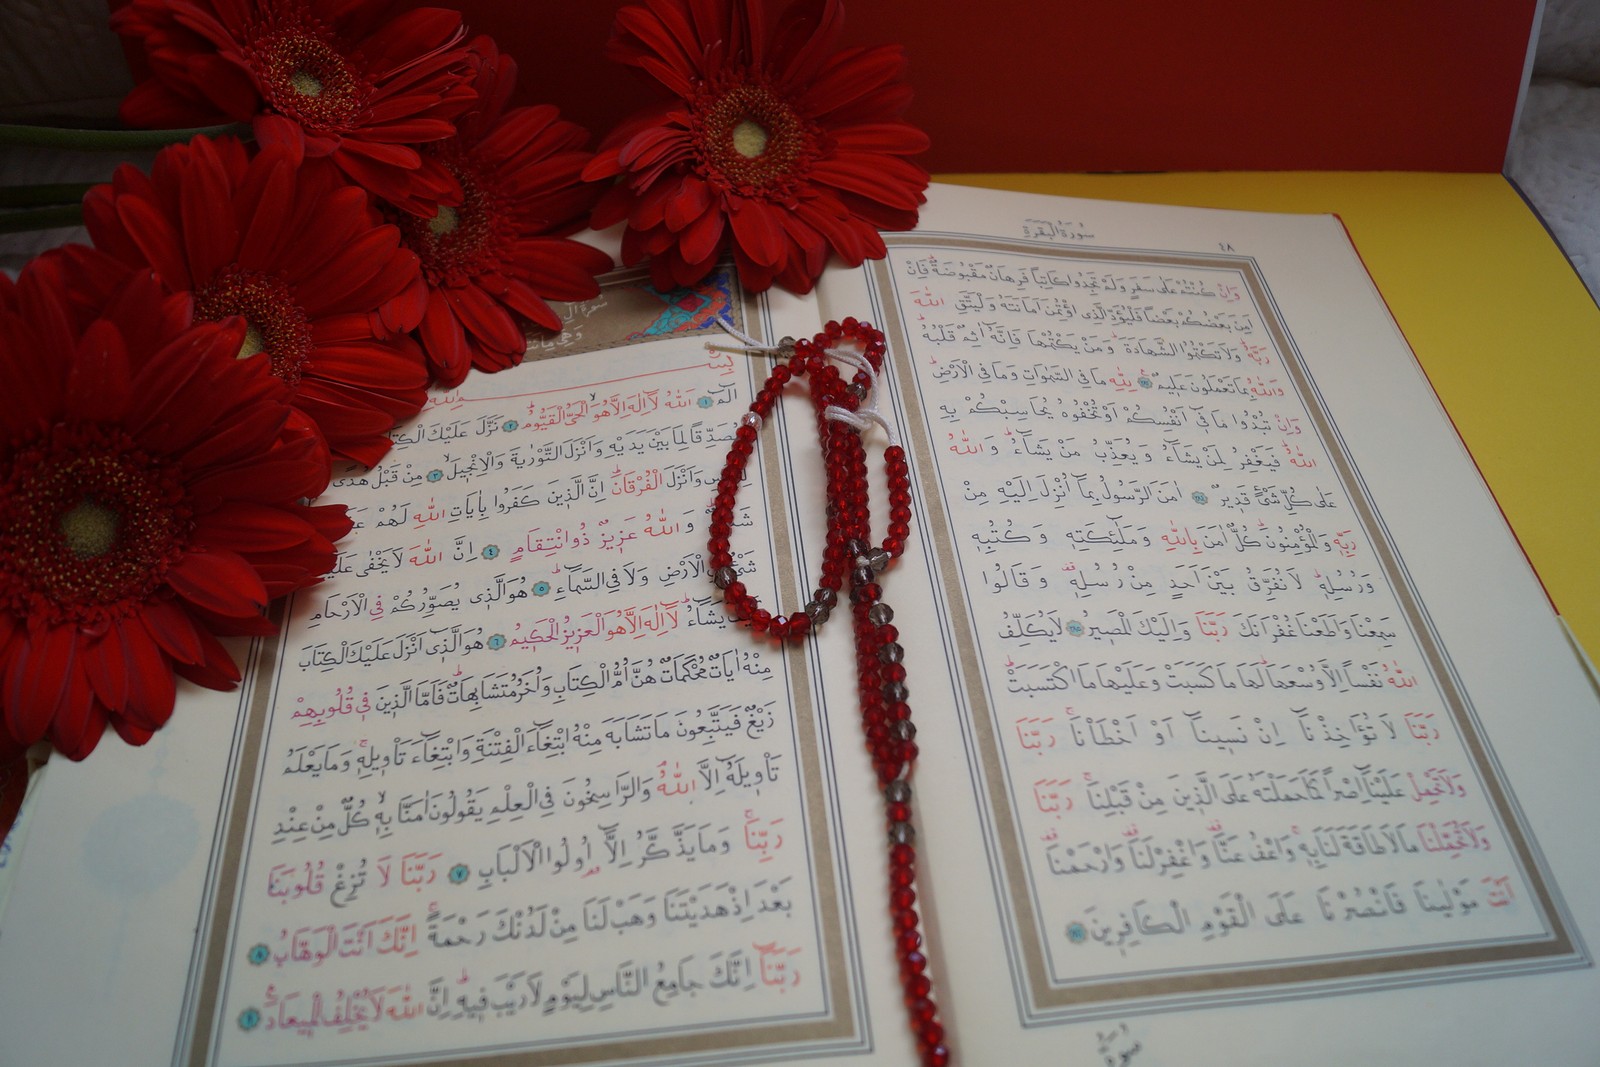 سُورَةُ الْبَقَرَةِ
٤٨
وَاِنْ كُنْتُمْ عَلٰى سَفَرٍ وَلَمْ تَجِدُوا كَاتِبًا فَرِهَانٌ مَقْبُوضَةٌ فَاِنْ
اَمِنَ بَعْضُكُمْ بَعْضًا فَلْيُؤَدِّ الَّذِى اؤْتُمِنَ اَمَانَتَهُ وَلْيَتَّقِ اللّٰهَ
رَبَّهُ وَلَا تَكْتُمُوا الشَّهَادَةَ وَمَنْ يَكْتُمْهَا فَاِنَّهُ اٰثِمٌ قَلْبُهُ
وَاللّٰهُ بِمَا تَعْمَلُونَ عَلِيمٌ لِلّٰهِ مَا فِى السَّمٰوَاتِ وَمَا فِى الْاَرْضِ
وَاِنْ تُبْدُوا مَا فِى اَنْفُسِكُمْ اَوْ تُخْفُوهُ يُحَاسِبْكُمْ بِهِ
اللّٰهُ فَيَغْفِرُ لِمَنْ يَشَاءُ وَيُعَذِّبُ مَنْ يَشَاءُ وَاللّٰهُ
عَلٰى كُلِّ شَىْءٍ قَدِيرٌ اٰمَنَ الرَّسُولُ بِمَا اُنْزِلَ اِلَيْهِ مِنْ
رَبِّهِ وَالْمُؤْمِنُونَ كُلٌّ اٰمَنَ بِاللّٰهِ وَمَلٰئِكَتِهِ وَكُتُبِهِ
وَرُسُلِهِ لَا نُفَرِّقُ بَيْنَ اَحَدٍ مِنْ رُسُلِهِ وَقَالُوا
سَمِعْنَا وَاَطَعْنَا غُفْرَانَكَ رَبَّنَا وَاِلَيْكَ الْمَصِيرُ لَا يُكَلِّفُ
اللّٰهُ نَفْسًا اِلَّا وُسْعَهَا لَهَا مَا كَسَبَتْ وَعَلَيْهَا مَا اكْتَسَبَتْ
رَبَّنَا لَا تُؤَاخِذْنَا اِنْ نَسِينَا اَوْ اَخْطَاْنَا رَبَّنَا
وَلَا تَحْمِلْ عَلَيْنَا اِصْرًا كَمَا حَمَلْتَهُ عَلَى الَّذِينَ مِنْ قَبْلِنَا رَبَّنَا
وَلَا تُحَمِّلْنَا مَا لَا طَاقَةَ لَنَا بِهِ وَاعْفُ عَنَّا وَاغْفِرْ لَنَا وَارْحَمْنَا
اَنْتَ مَوْلٰينَا فَانْصُرْنَا عَلَى الْقَوْمِ الْكَافِرِينَ
سُورَةُ
سُورَةُ
وَهِىَ
الٓمٓ ١ اَللّٰهُ لَا اِلٰهَ اِلَّا هُوَ الْحَىُّ الْقَيُّومُ ٢ نَزَّلَ عَلَيْكَ
مُصَدِّقًا لِمَا بَيْنَ يَدَيْهِ وَاَنْزَلَ التَّوْرٰيةَ وَالْاِنْجِيلَ ٣ مِنْ قَبْلُ هُدًى
وَاَنْزَلَ الْفُرْقَانَ اِنَّ الَّذِينَ كَفَرُوا بِاٰيَاتِ اللّٰهِ لَهُمْ
وَاللّٰهُ عَزِيزٌ ذُو انْتِقَامٍ ٤ اِنَّ اللّٰهَ لَا يَخْفٰى
الْاَرْضِ وَلَا فِى السَّمَاءِ ٥ هُوَ الَّذِى يُصَوِّرُكُمْ فِى الْاَرْحَامِ
يَشَاءُ لَا اِلٰهَ اِلَّا هُوَ الْعَزِيزُ الْحَكِيمُ ٦ هُوَ الَّذِى اَنْزَلَ عَلَيْكَ الْكِتَابَ
مِنْهُ اٰيَاتٌ مُحْكَمَاتٌ هُنَّ اُمُّ الْكِتَابِ وَاُخَرُ مُتَشَابِهَاتٌ فَاَمَّا الَّذِينَ فِى قُلُوبِهِمْ
زَيْغٌ فَيَتَّبِعُونَ مَا تَشَابَهَ مِنْهُ ابْتِغَاءَ الْفِتْنَةِ وَابْتِغَاءَ تَاْوِيلِهِ وَمَا يَعْلَمُ
تَاْوِيلَهُ اِلَّا اللّٰهُ وَالرَّاسِخُونَ فِى الْعِلْمِ يَقُولُونَ اٰمَنَّا بِهِ كُلٌّ مِنْ عِنْدِ
رَبِّنَا وَمَا يَذَّكَّرُ اِلَّا اُولُوا الْاَلْبَابِ ٧ رَبَّنَا لَا تُزِغْ قُلُوبَنَا
بَعْدَ اِذْ هَدَيْتَنَا وَهَبْ لَنَا مِنْ لَدُنْكَ رَحْمَةً اِنَّكَ اَنْتَ الْوَهَّابُ ٨
رَبَّنَا اِنَّكَ جَامِعُ النَّاسِ لِيَوْمٍ لَا رَيْبَ فِيهِ اِنَّ اللّٰهَ لَا يُخْلِفُ الْمِيعَادَ ٩